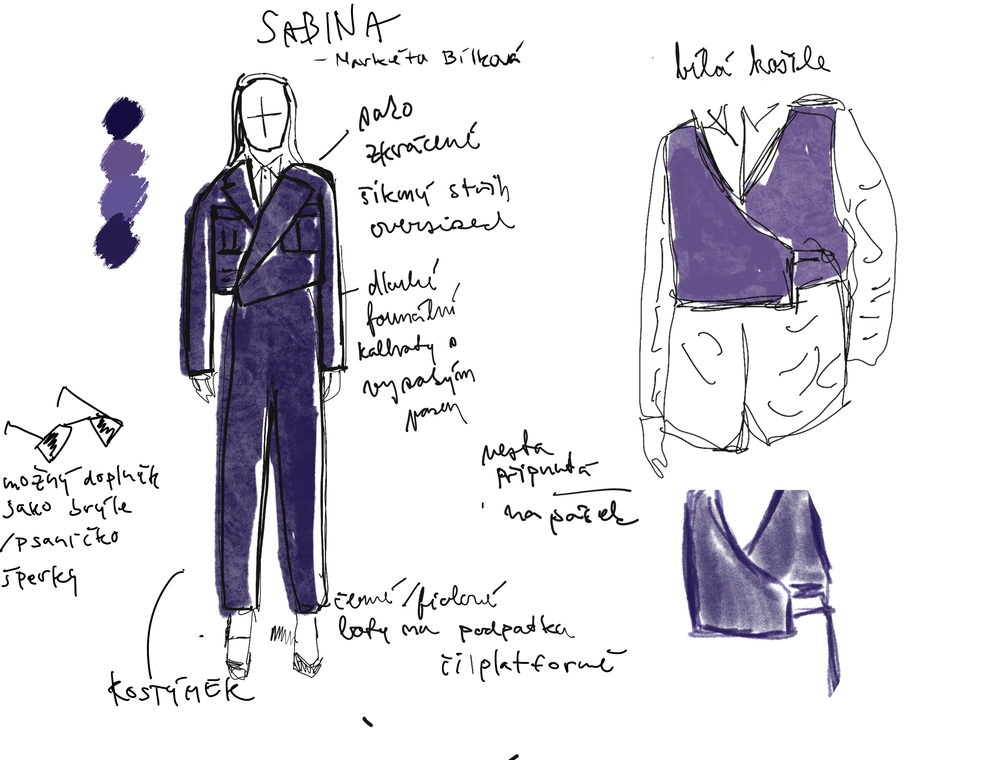 SABINA
- Markéta Bílková
sako
zkrácené
šikmý střih
oversized
dlouhé
formální
kalhoty s
vysokým
pasem
bílá košile
vesta
připnutá
na pásek
možný doplněk
jako brýle
/psaníčko
šperky
černé/fialové
boty na podpatku
či platformě
KOSTÝMEK